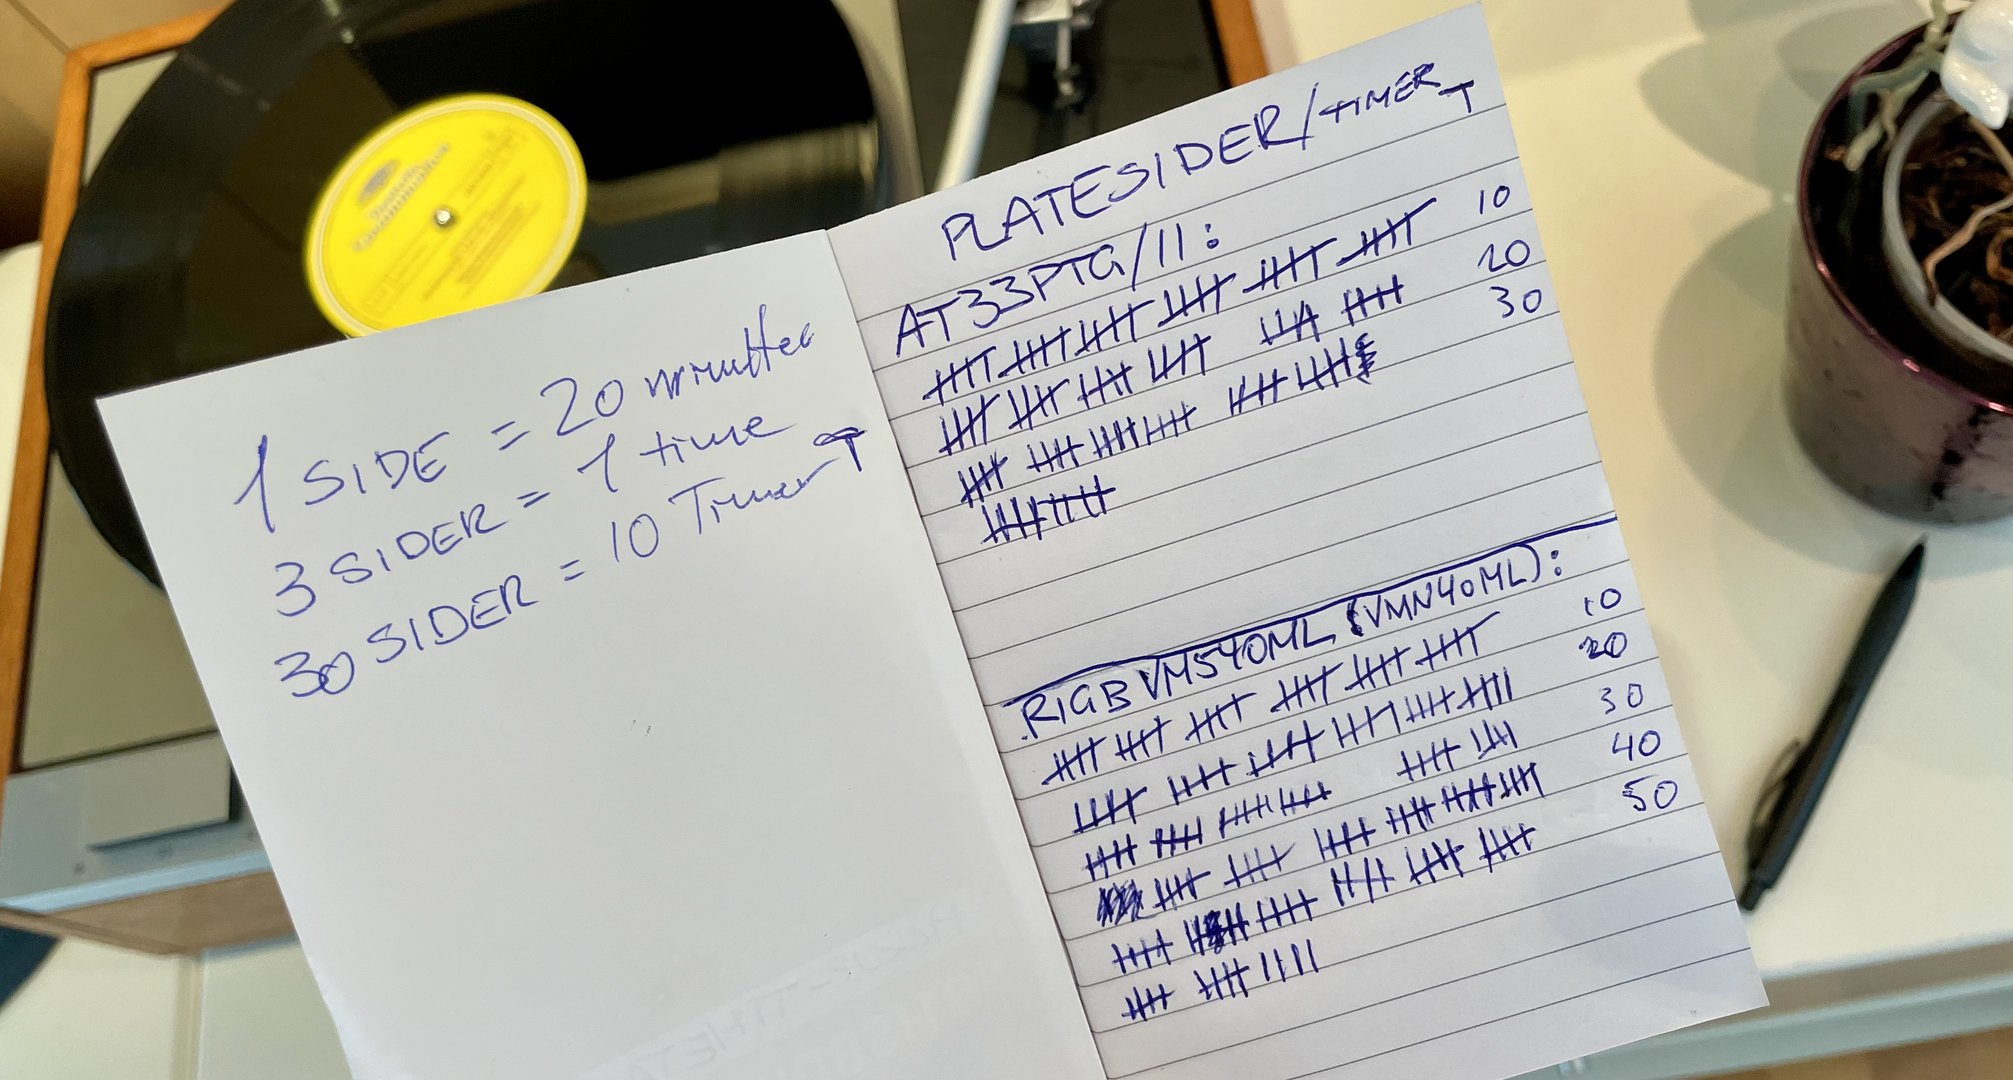 Deutsche
Grammophon
1 SIDE = 20 minutter
3 SIDER = 1 time
30 SIDER = 10 Timer T
PLATESIDER/TIMER T
AT33PTG/II:
10
20
30
RIGB VM540ML (VMN40ML):
10
20
30
40
50